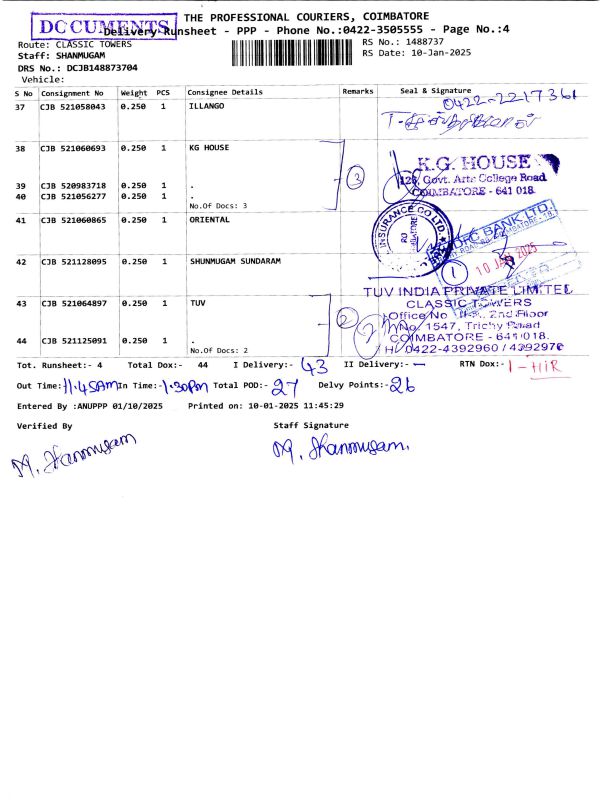 THE PROFESSIONAL COURIERS, COIMBATORE
DOCUMENTS
Delivery Runsheet - PPP - Phone No.:0422-3505555 - Page No.:4
Route: CLASSIC TOWERS
RS No.: 1488737
Staff: SHANMUGAM
RS Date: 10-Jan-2025
DRS No.: DCJB148873704
Vehicle:
S No Consignment No Weight PCS Consignee Details Remarks Seal & Signature
0422-2217361
37 CJB 521058043 0.250 1 ILLANGO
38 CJB 521060693 0.250 1 KG HOUSE
3
K.G. HOUSE
Govt. Arts College Road
COIMBATORE - 641 018.
39 CJB 520983718 0.250 1 .
40 CJB 521056277 0.250 1 .
No.Of Docs: 3
41 CJB 521060865 0.250 1 ORIENTAL
INSURANCE CO LTD.
BANK LTD.
42 CJB 521128095 0.250 1 SHUNMUGAM SUNDARAM
1
10 JAN 2025
TUV INDIA PRIVATE LIMITED
CLASSIC TOWERS
43 CJB 521064897 0.250 1 TUV
2
Office No 2nd Floor
No 1547, Trichy Road
44 CJB 521125091 0.250 1 .
COIMBATORE - 641 018.
No.Of Docs: 2
0422-4392960 /
Tot. Runsheet:- 4 Total Dox:- 44 I Delivery:- 43 II Delivery:- - RTN Dox:- 1 - HIR
Out Time:- 11.45AM In Time:- 1.30PM Total POD:- 27 Delvy Points:- 26
Entered By :ANUPPP 01/10/2025 Printed on: 10-01-2025 11:45:29
Verified By Staff Signature
M. Shanmugam M. Shanmugam.